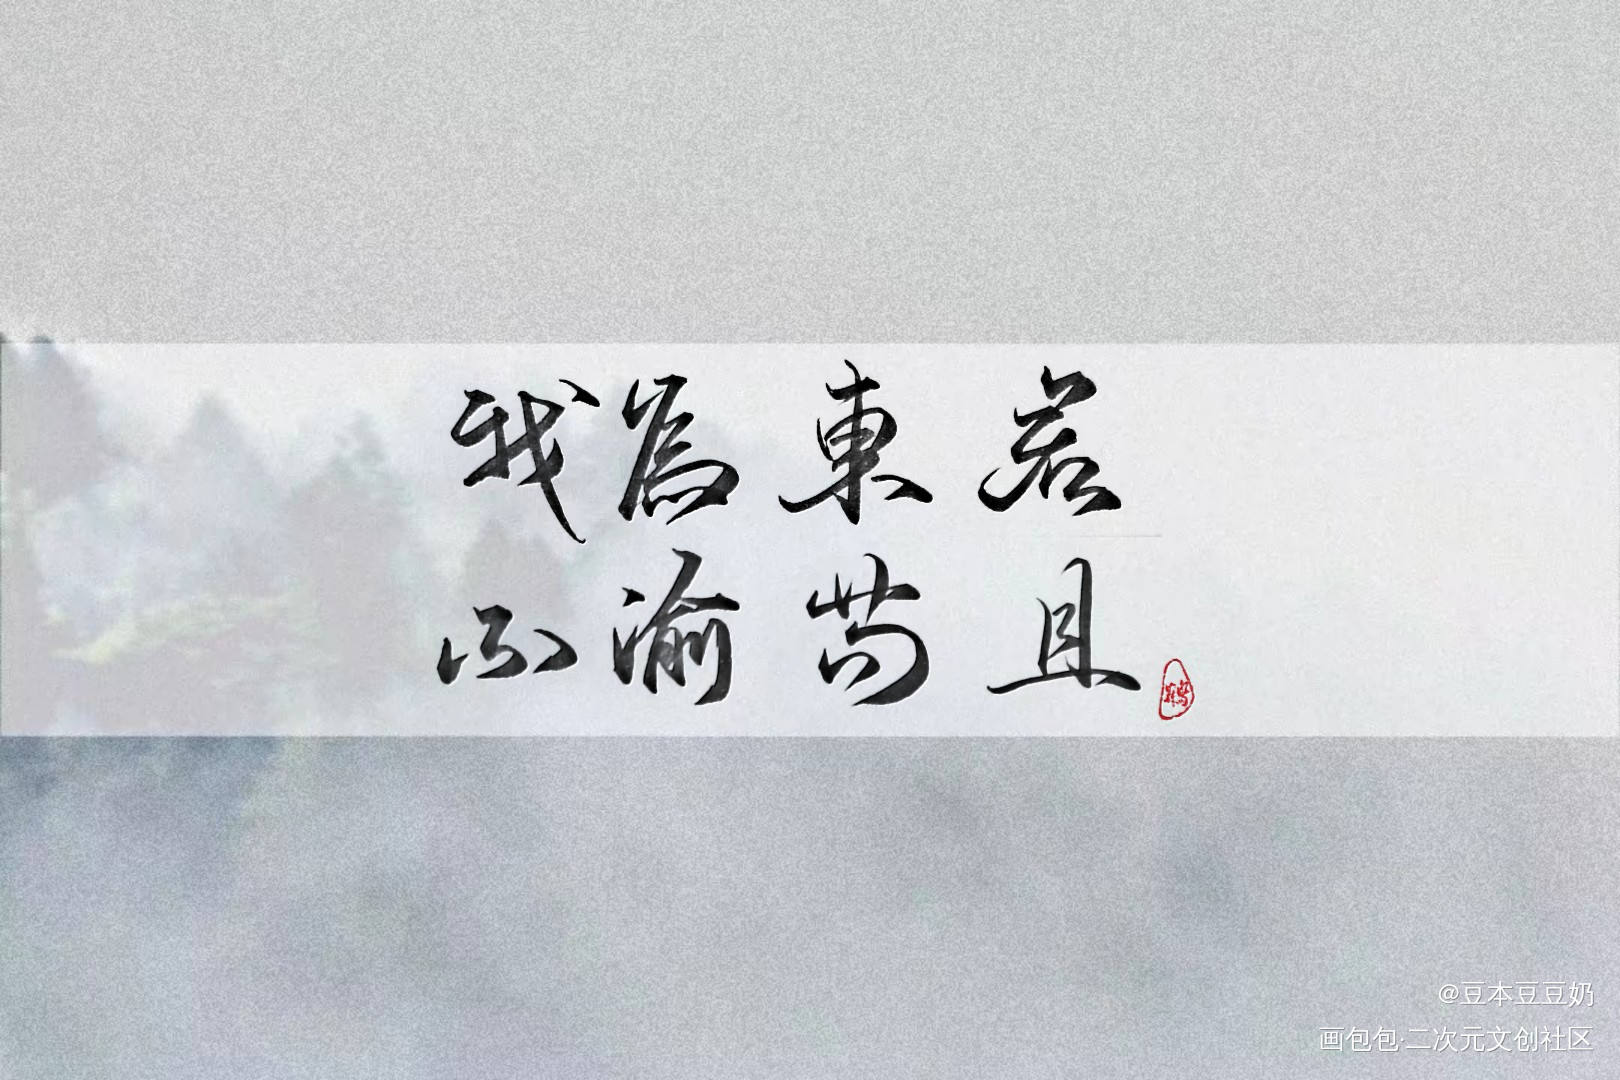 我為東君
不渝苟且
@豆本豆豆奶
画包包·二次元文创社区